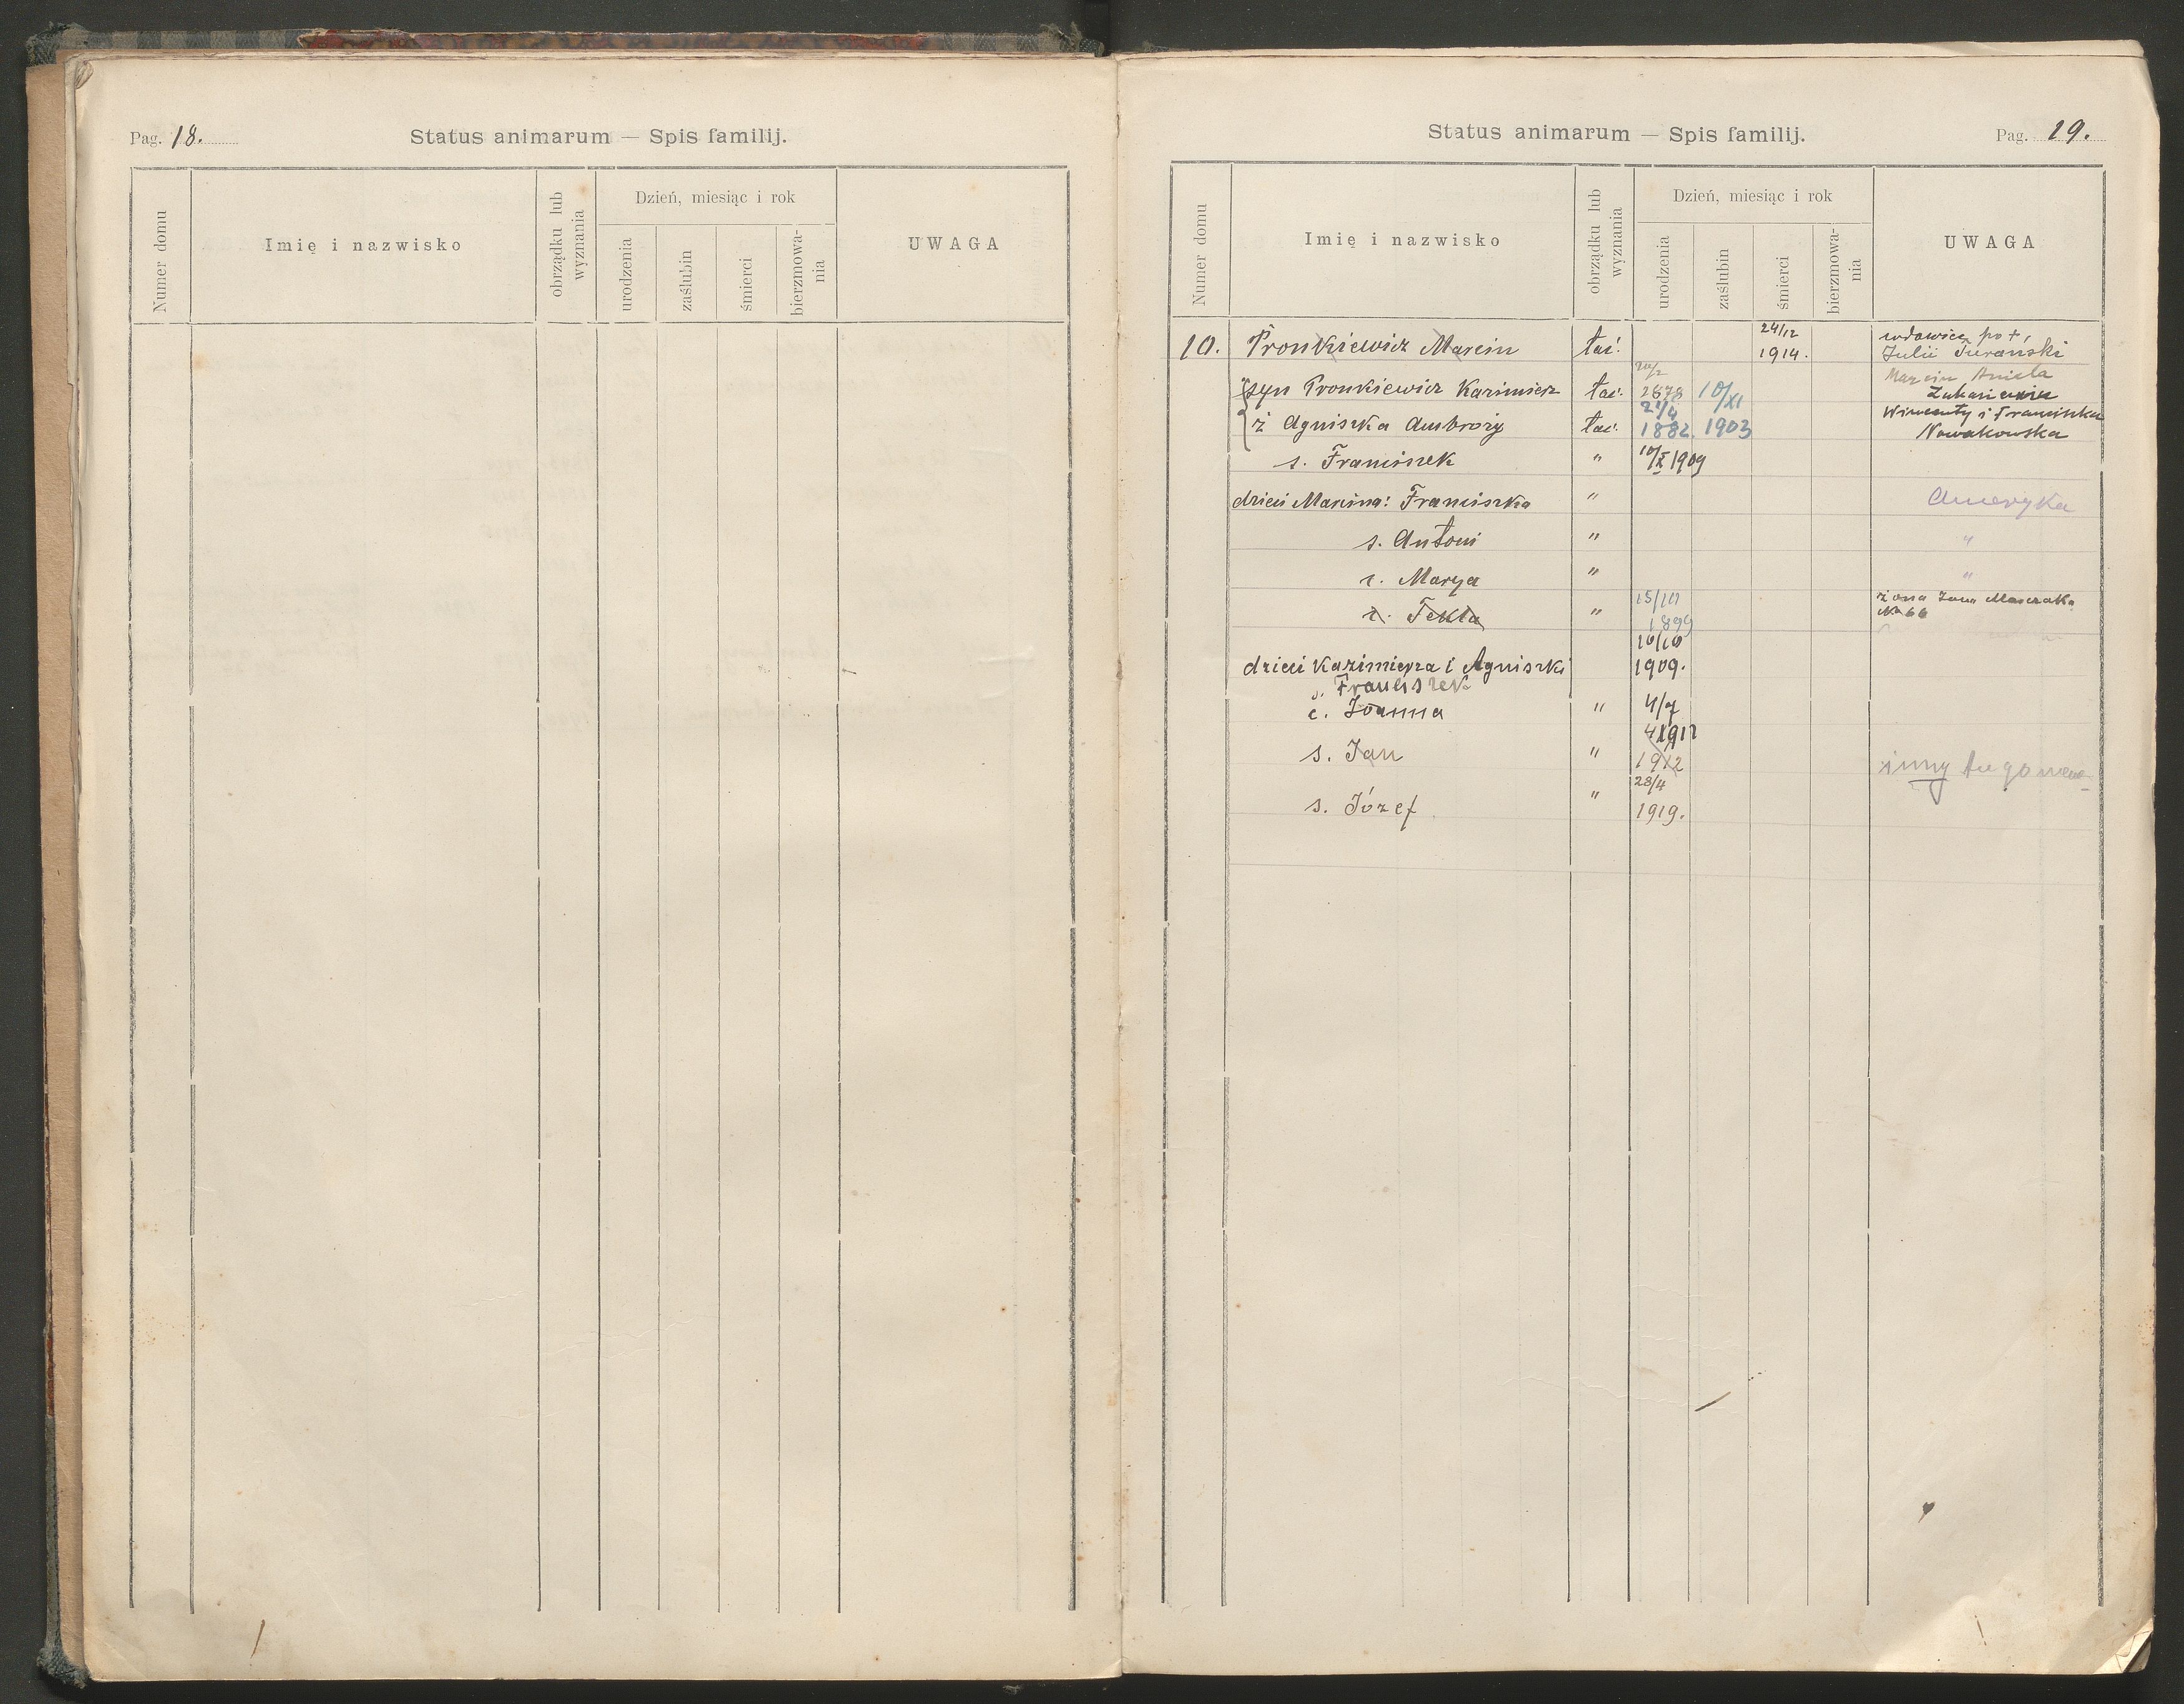 Pag. 18.
Status animarum — Spis familij.
Numer domu
Imię i nazwisko
obrządku lub wyznania
Dzień, miesiąc i rok
urodzenia
zaślubin
śmierci
bierzmowa-
nia
UWAGA
Status animarum — Spis familij.
Pag. 19.
Numer domu
Imię i nazwisko
obrządku lub wyznania
Dzień, miesiąc i rok
urodzenia
zaślubin
śmierci
bierzmowa-
nia
UWAGA
10. Pronkiewicz Marcin łać. 24/12 1914. wdowiec po †, Julii
syn Pronkiewicz Kazimierz łać. 1878 10/XI Marcin Aniela
ż Agniszka Ambroży łać. 21/4 1882. 1903 Wincenty i Franciszka Nowakowska
s. Franciszek " 10/X 1909
dzieci Marcina: Franciszka " Ameryka
s. Antoni " "
c. Marya " "
c. Tekla " 15/III 1899 żona Jana No 66
dzieci Kazimierza i Agniszki 10/10 1909.
s. Franciszek
c. Joanna " 4/7
s. Jan " 1912 inny
s. Józef " 28/4 1919.